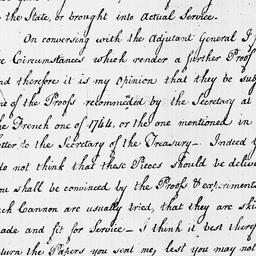 the State, or brought into Actual Service.
On conversing with the Adjutant General I
e Circumstances which render a further Proof
nd therefore it is my opinion that they be sub
ne of the Proofs recommended by the Secretary at
he French one of 1744, or the one mentioned in
tter to the Secretary of the Treasury— Indeed
do not think that these Pieces should be delive
ou shall be convinced by the Proofs & experiments
ch Cannon are usually tried, that they are
ade and fit for Service— I think it best there
turn the Papers you sent me, lest you may not